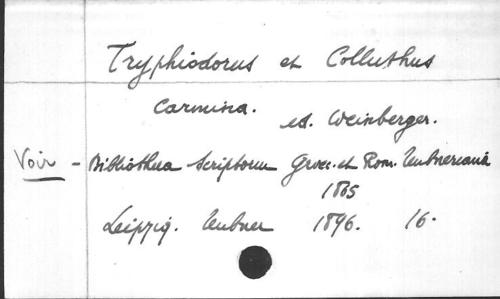 Tryphiodorus et Colluthus
Carmina. ed. Weinberger.
Voir - Bibliotheca Scriptorum Graec. et Rom. Teubneriana
1865
Leipzig. Teubner 1896. 16.